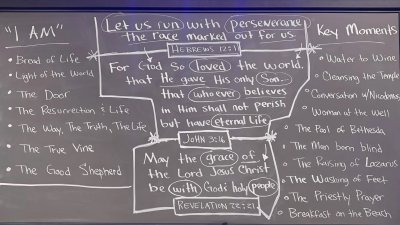 "I AM"
• Bread of Life
• Light of the World
• The Door
• The Resurrection & Life
• The Way, The Truth, The Life
• The True Vine
• The Good Shepherd
Let us run with perseverance
the race marked out for us
HEBREWS 12:1
For God so loved the world,
that He gave His only Son...
that whoever believes
in Him shall not perish
but have eternal Life
JOHN 3:16
May the grace of
the Lord Jesus Christ
be with God's holy people
REVELATION 22:21
Key Moments
• Water to Wine
• Cleansing the Temple
• Conversation w/Nicodemus
• Woman at the Well
• The Pool of Bethesda
• The Man born blind
• The Raising of Lazarus
• The Washing of Feet
• The Priestly Prayer
• Breakfast on the Beach